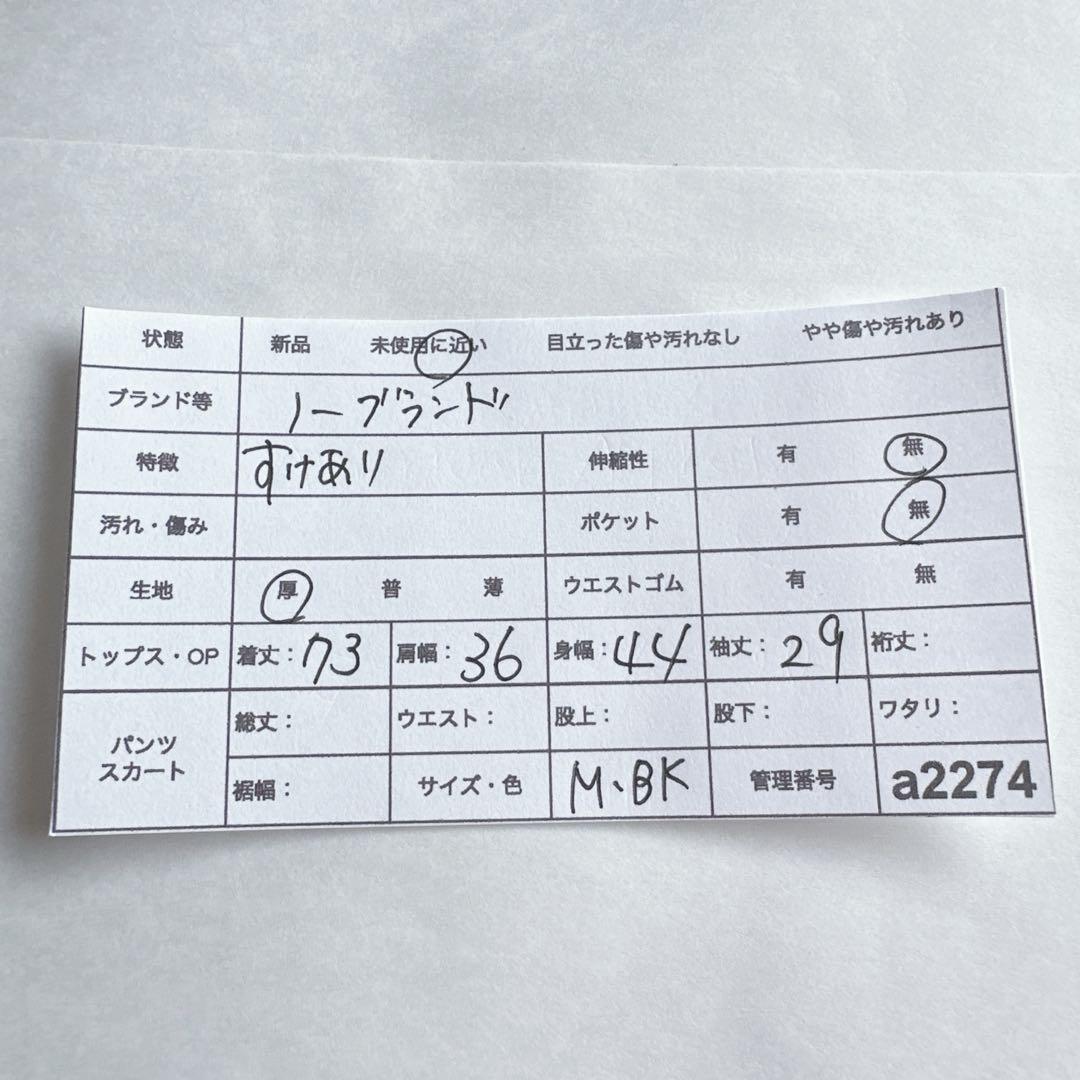 状態 新品 未使用に近い 目立った傷や汚れなし やや傷や汚れあり
ブランド等 ノーブランド
特徴 すけあり 伸縮性 有 無
汚れ・傷み ポケット 有 無
生地 厚 普 薄 ウエストゴム 有 無
トップス・OP 着丈：73 肩幅：36 身幅：44 袖丈：29 裄丈：
パンツ
スカート
総丈： ウエスト： 股上： 股下： ワタリ：
裾幅： サイズ・色 M、BK 管理番号 a2274